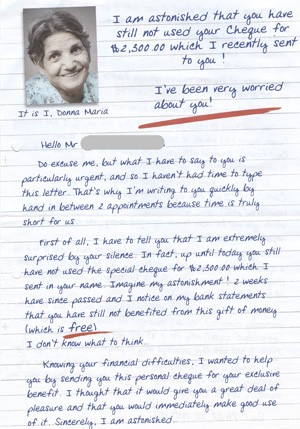 I am astonished that you have
still not used your Cheque for
$2,500.00 which I recently sent
to you!
I've been very worried
about you!
It is I, Donna Maria
Hello Mr
Do excuse me, but what I have to say to you is
particularly urgent, and so I haven't had time to type
this letter. That's why I'm writing to you quickly by
hand in between 2 appointments because time is truly
short for us.
First of all, I have to tell you that I am extremely
surprised by your silence. In fact, up until today you still
have not used the special cheque for $2,500.00 which I
sent in your name. Imagine my astonishment! 2 weeks
have since passed and I notice on my bank statements
that you have still not benefited from this gift of money
(which is free).
I don't know what to think...
Knowing your financial difficulties, I wanted to help
you by sending you this personal cheque for your exclusive
benefit. I thought that it would give you a great deal of
pleasure and that you would immediately make good use
of it. Sincerely, I am astonished...